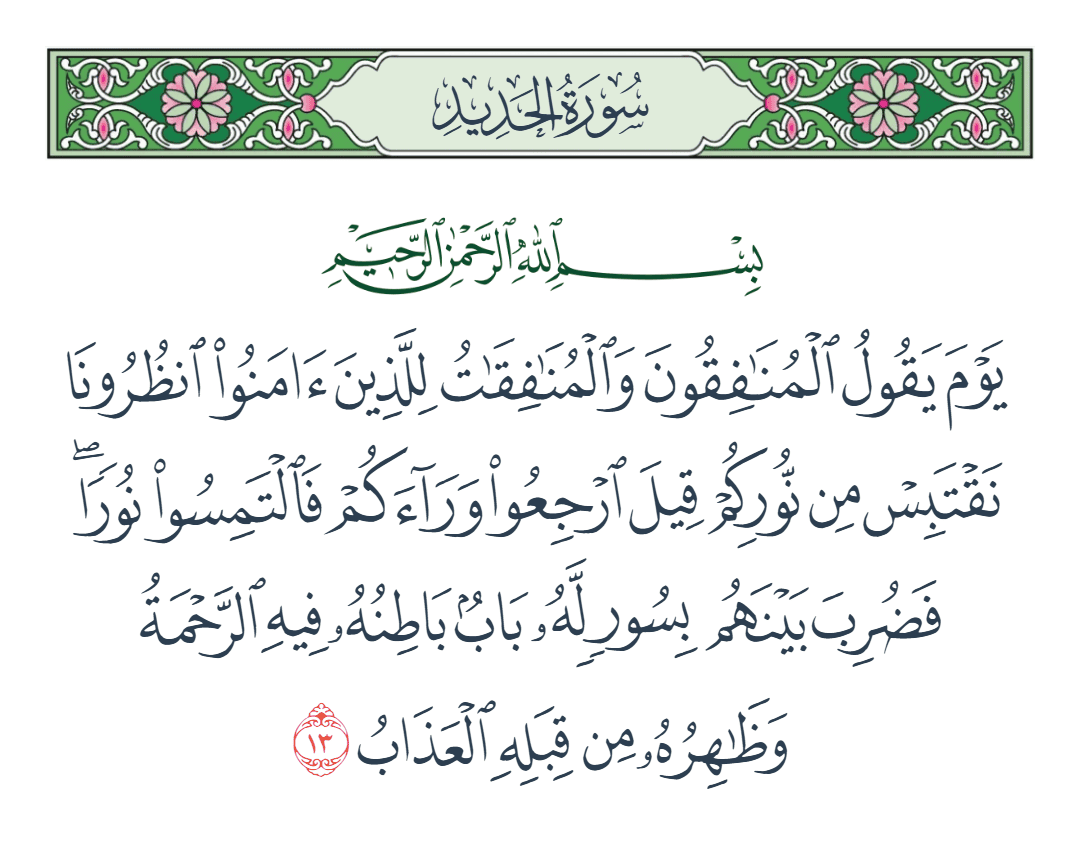 سُورَةُ الحَدِيدِ
بِسْمِ ٱللَّهِ ٱلرَّحْمَٰنِ ٱلرَّحِيمِ
يَوْمَ يَقُولُ ٱلْمُنَٰفِقُونَ وَٱلْمُنَٰفِقَٰتُ لِلَّذِينَ ءَامَنُوا۟ ٱنظُرُونَا
نَقْتَبِسْ مِن نُّورِكُمْ قِيلَ ٱرْجِعُوا۟ وَرَآءَكُمْ فَٱلْتَمِسُوا۟ نُورًا ۖ
فَضُرِبَ بَيْنَهُم بِسُورٍ لَّهُۥ بَابٌۢ بَاطِنُهُۥ فِيهِ ٱلرَّحْمَةُ
وَظَٰهِرُهُۥ مِن قِبَلِهِ ٱلْعَذَابُ ١٣